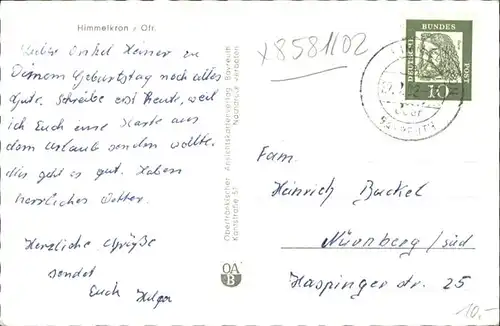 Himmelkron / Ofr.
Lieber Onkel Heiner zu
Deinem Geburtstag noch alles
Gute. Schreibe erst heute, weil
ich Euch eine Karte aus
dem Urlaub senden wollte.
Uns geht es gut. Haben
herrliches Wetter.
Herzliche Grüße
sendet
Euch Helga
Oberfränkischer Ansichtskartenverlag Bayreuth
Kantstraße 5 Nachdruck verboten
OA
B
x8581102
DEUTSCHE
BUNDES
POST
10
Bayreuth
Fam.
Heinrich Backel
Nürnberg/süd
Haspinger str. 25
10,-